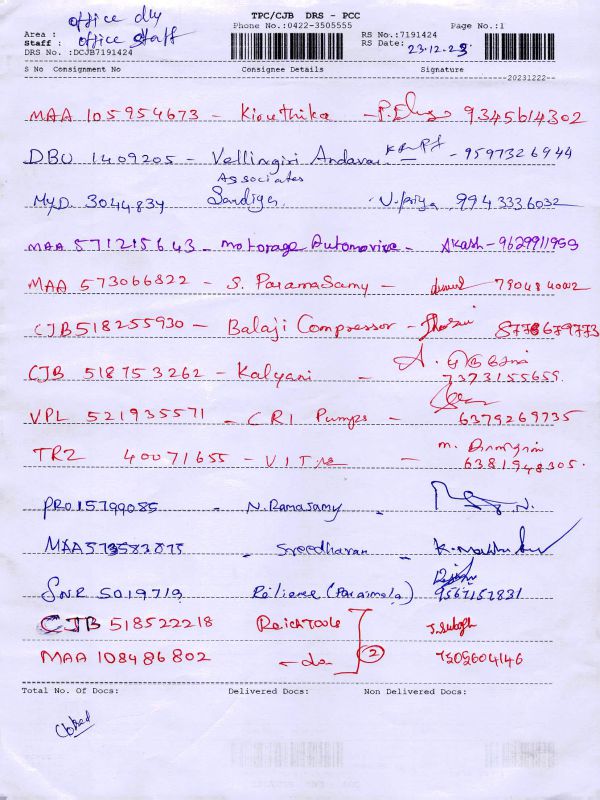 TPC/CJB DRS - PCC
office dly
Phone No.:0422-3505555 Page No.:1
Area :
Staff : office staff
RS No.:7191424
DRS No.:DCJB7191424
RS Date: 23.12.23
S No Consignment No Consignee Details Signature
20231222--
MAA 105954673 - Kiruthika - 9345614302
DBU 1409205 - Vellingiri Andavar - 9597326944
Associates
MYD. 3044834 Sandiya V. Priya 9943336032
MAA 571215643 - motorage Automovive - Akash - 9629911959
MAA 573066822 - S. ParamaSamy - 790484002
CJB 518255930 - Balaji Compressor - 8778679773
CJB 518753262 - Kalyani - A.
7373155659
VPL 521935571 - CRI Pumps - 6379269735
TRZ 40071655 - VIT - m.
6381948305.
PRO15799085 - N. Ramasamy N.
MAA573583875 - Sreedharan -
SNR 5019719 Reliance (Parimala) 9567157831
CJB 518522218 Reich Tools J. Subash
MAA 108486802 - do (2) 7505604146
Total No. Of Docs: Delivered Docs: Non Delivered Docs:
Closed